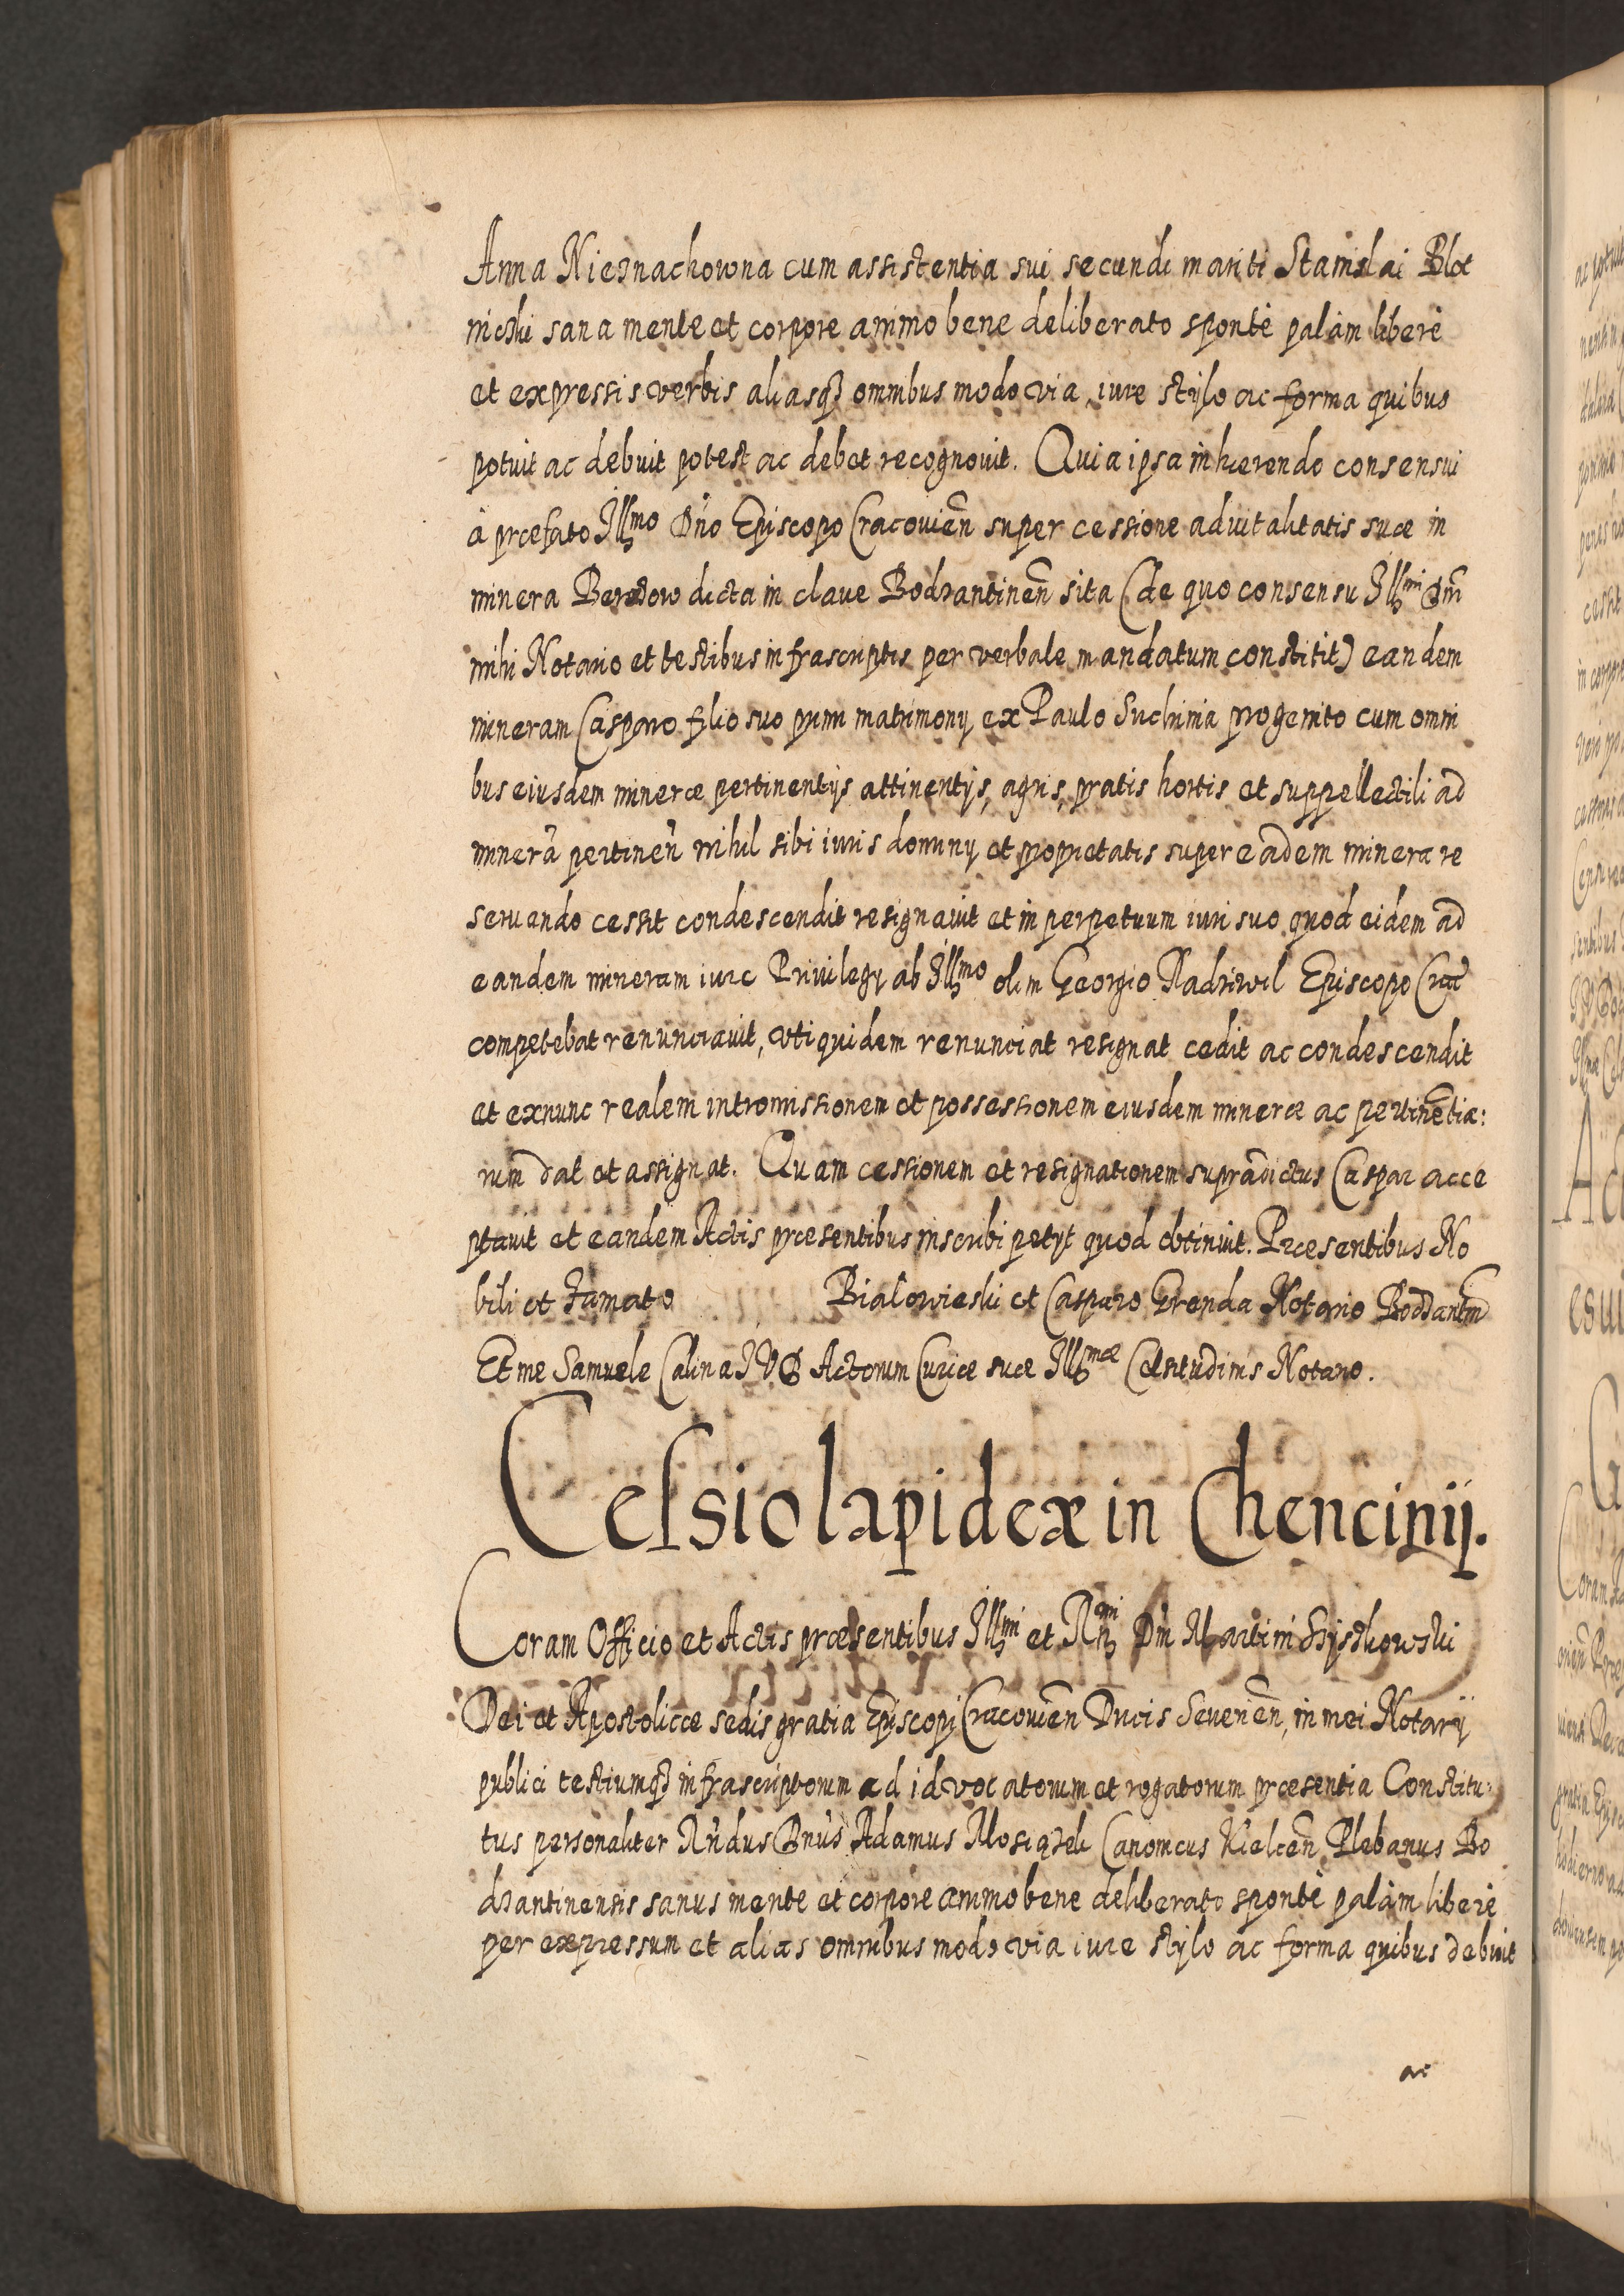 Anna Nieznachowna cum assistentia sui secundi mariti Stanislai Plot
nicski sana mente et corpore animo bene deliberato sponte palàm liberè
et expressis verbis aliasq3 omnibus modo via iure stylo ac forma quibus
potuit ac debuit potest ac debet recognouit. Quia ipsa inhærendo consensui
à præfato Illmo Dno Episcopo Cracouien̄ super cessione aduitalitatis suæ in
minera dicta in claue Bodzantinen̄ sita (de quo consensu Illmi Dni
mihi Notario et testibus infrascriptis per verbale mandatum constitit) eandem
mineram Casparo filio suo primi matrimonij ex Paulo Suchinia progenito cum omni
bus eiusdem mineræ pertinentijs attinentijs, agris, pratis hortis et suppellectili ad
minerā pertinen̄ nihil sibi iuris dominij et proprietatis super eadem minera re
seruando cessit condescendit resignauit et in perpetuum iuri suo quod eidem ad
eandem mineram iure Priuilegij ab Illmo olim Georgio Radziwil Episcopo Crac̄
competebat renunciauit, vti quidem renunciat resignat cedit ac condescendit
et exnunc realem intromissionem et possessionem eiusdem mineræ ac pertinētia:
rum dat et assignat. Quam cessionem et resignationem supradictus Caspar acce
ptauit et eandem Actis præsentibus inscribi petijt quod obtinuit. Præsentibus No
bili et Famato Bialowieski et Casparo Grenda Notario Bodzantin̄
Et me Samuele Calina IVD Actorum Curiæ suæ Illmæ Celsitudinis Notario.
Cessio lapideæ in Chencinij.
Coram Officio et Actis præsentibus Illmi et Rmi Dni Martini Szyszkowski
Dei et Apostolicæ sedis gratia Episcopi Cracouien̄ Ducis Seuerien̄, in mei Notarij
publici testiumq3 infrascriptorum ad id vocatorum et rogatorum præsentia Constitu:
tus personaliter Rndus Dnus Adamus Canonicus Kielcen̄ Plebanus Bo
dzantinensis sanus mente et corpore animo bene deliberato spontè palàm liberè
per expressum et alias omnibus modo via iure stylo ac forma quibus debuit
ac